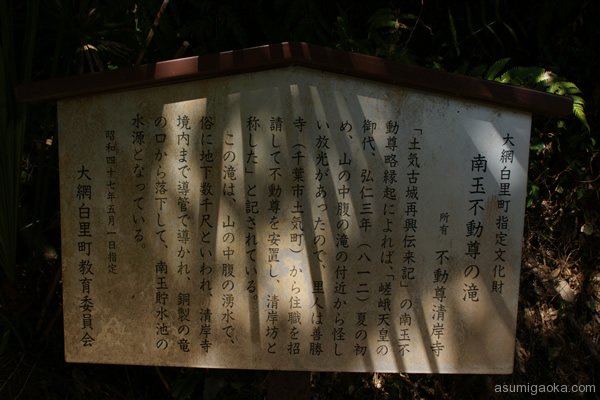 大網白里町指定文化財
南玉不動尊の滝
所有 不動尊清岸寺
「土気古城再興伝来記」の南玉不
動尊略縁起によれば、「嵯峨天皇の
御代、弘仁三年(八一二)夏の初
め、山の中腹の滝の付近から怪し
い放光があったので、里人は善勝
寺(千葉市土気町)から住職を招
請して不動尊を安置し、清岸坊と
称した」と記されている。
この滝は、山の中腹の湧水で、
俗に地下数千尺といわれ、清岸寺
境内まで導管で導かれ、銅製の竜
の口から落下して、南玉貯水池の
水源となっている。
昭和四十七年五月一日指定
大網白里町教育委員会
asumigaoka.com